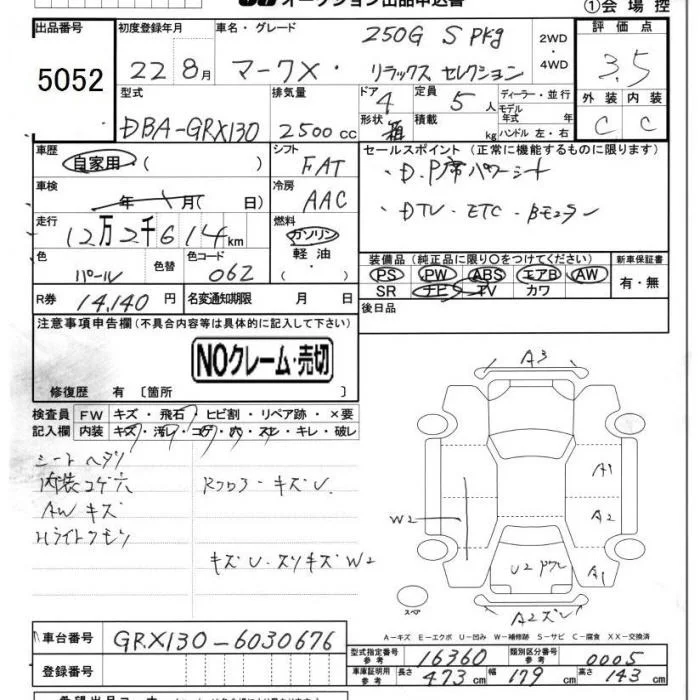 オークション出品申込書
①会場控
出品番号 5052
初度登録年月 22 8月
車名・グレード 250G S PKg
マークX・リラックス セレクション
2WD・4WD
評価点 3.5
外装 C 内装 C
型式 DBA-GRX130
排気量 2500cc
ドア 4 形状 箱
定員 5人
積載 kg
ディーラー・並行
モデル年式 年式
ハンドル 左・右
車歴 自家用 ( )
シフト FAT
セールスポイント (正常に機能するものに限ります)
・D.P席パワーシート
・DTV・ETC・Bモニター
車検 年 月( 日)
冷房 AAC
走行 12万2千614km
燃料 ガソリン 軽油 ・( )
色 パール 色替 色コード 062
装備品 (純正品に限り○をつけてください)
PS PW ABS エアB AW
SR ナビ TV カワ
新車保証書 有・無
R券 14,140円 名変通知期限 月 日
後日品
注意事項申告欄(不具合内容等は具体的に記入して下さい)
NOクレーム・売切
修復歴 有 〔箇所 〕
検査員記入欄
FW キズ・飛石・ヒビ割・リペア跡・×要
内装 キズ・汚レ・コゲ・穴・スレ・キレ・破レ
シートヘタリ
内装コゲ穴
AWキズ
Hライトクモリ
キズU.
キズU・スリキズW2
A3
A1
A2
W2
U2
A1
スペア
A2ズレ
A-キズ E-エクボ U-凹み W-補修跡 S-サビ C-腐食 XX-交換済
車台番号 GRX130-6030676
登録番号
型式指定番号 参考 16360 類別区分番号 参考 0005
車庫証明用 参考 長さ 473cm 幅 179cm 高さ 143cm
希望出品コーナー